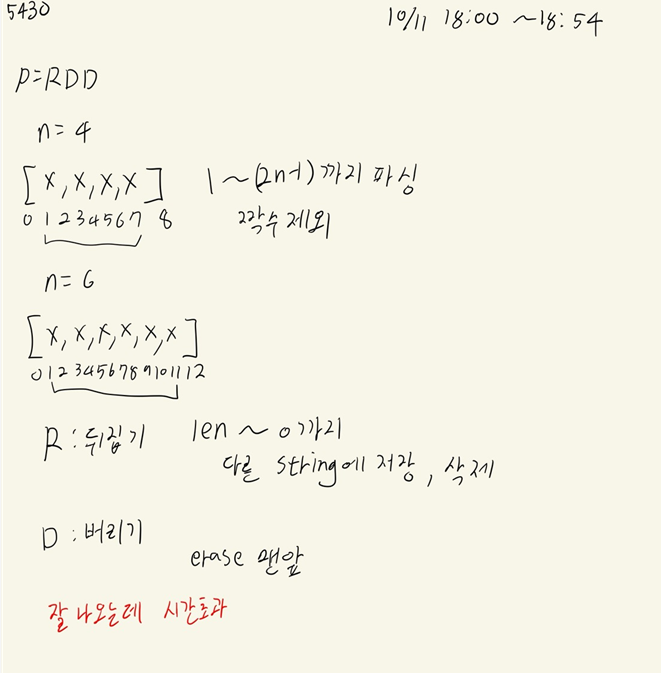 5430
10/11 18:00 ~18:54
P=RDD
n=4
[x,x,x,x] 1~(2n-1)까지 파싱
0 1 2 3 4 5 6 7 8 짝수 제외
n=6
[x,x,x,x,x,x]
0 1 2 3 4 5 6 7 8 9 10 11 12
R:뒤집기 len ~ 0까지
다른 string에 저장, 삭제
D:버리기
erase 맨앞
잘 나오는데 시간초과